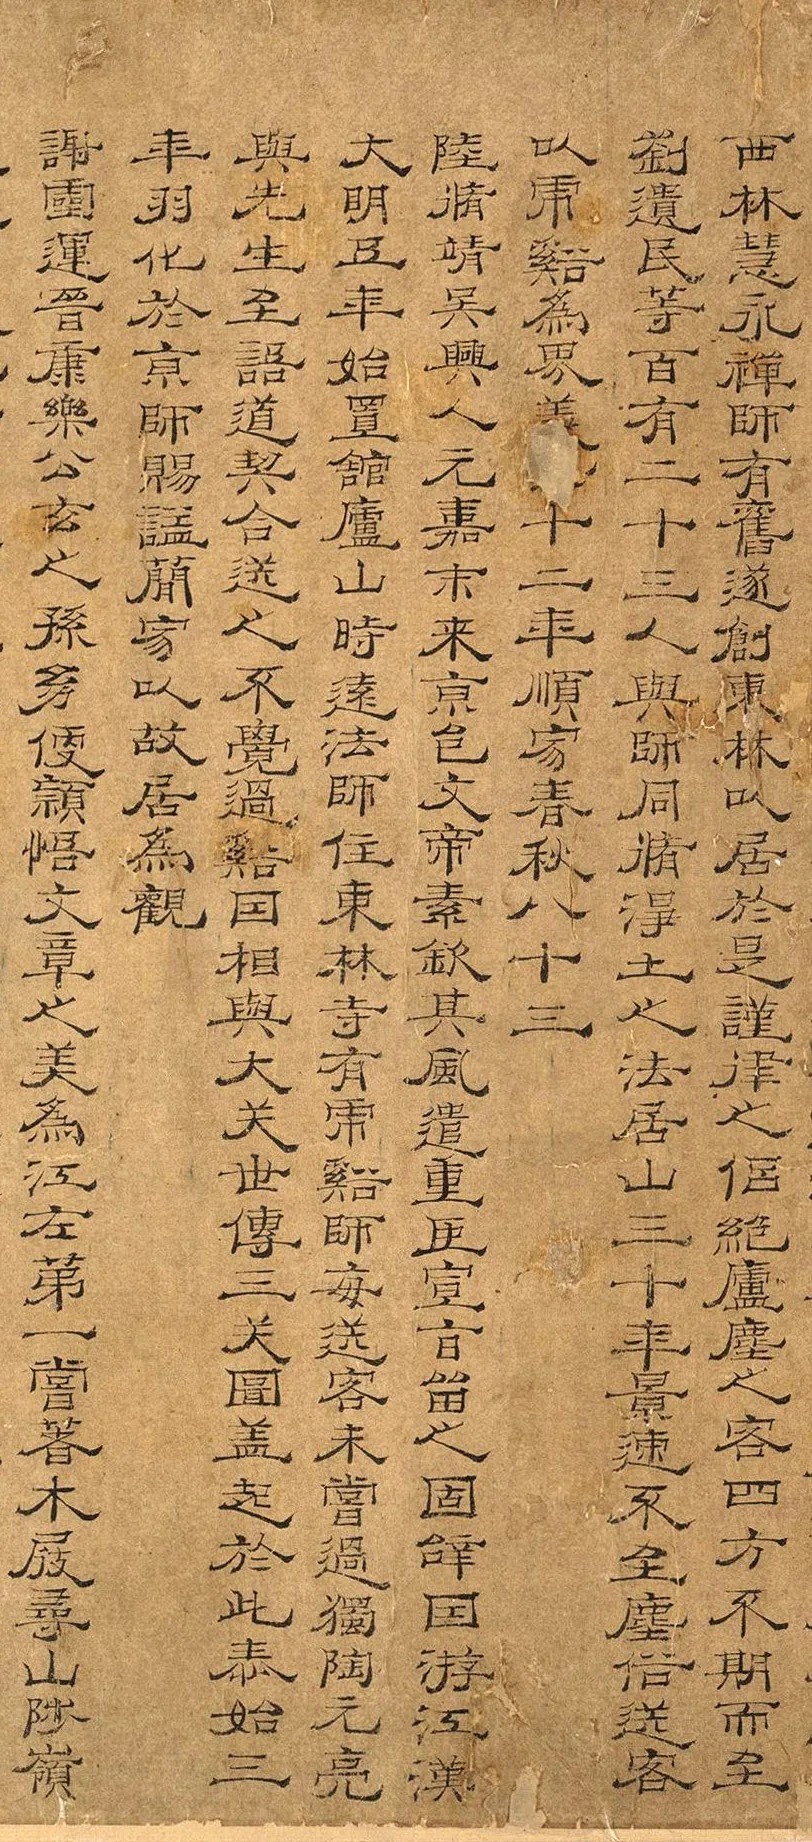 西林慧永禪師有舊遂創東林以居於是謹律之侶絕塵之客四方不期而至
劉遺民等百有二十三人與師同脩淨土之法居山三十年景速不至塵俗送客
以虎谿為界義十二年順寂春秋八十三
陸脩靖吳興人元嘉末來京邑文帝素欽其風遣重臣宣旨留之固辭回游江漢
大明五年始置館廬山時遠法師住東林寺有虎谿師每送客未嘗過獨陶元亮
與先生至語道契合送之不覺過谿回相與大笑世傳三笑圖蓋起於此泰始三
年羽化於京師賜謚簡寂以故居為觀
謝靈運晉康樂公玄之孫身便穎悟文章之美為江左第一嘗著木屐尋山陟嶺